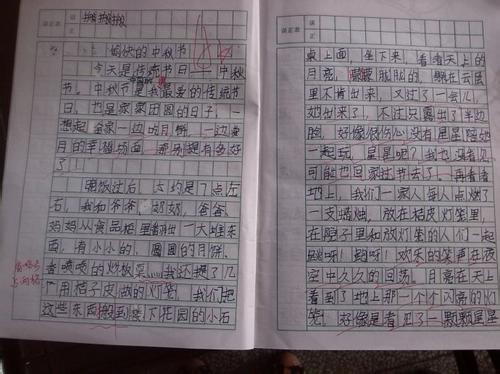 搬搬搬
愉快的中秋节
今天是传统节日——中秋
节。中秋节是我最爱的传统节
日，也是家家团圆的日子，一
想起全家一边吃月饼，一边赏
月的幸福场面，那别提有多好
了！
晚饭过后，大约是7点左
右，我和爷爷、奶奶、爸爸、
妈妈从食品柜里拿出一大堆东
西，有小小的、圆圆的月饼、
香喷喷的炒板栗……我还提了几
个用桔子皮做的灯笼。我们把
这些东西搬到楼下花园的小石
桌上面，坐下来，看着天上的
月亮，朦朦胧胧的，躲在云层
里不肯出来，又过了一会儿，
她出来了，不过只露出了半边
脸，好像很伤心没有星星陪她
一起玩。星星呢？我也没看见
可能也回家过节去了……再看看
地上，我们一家人每人点燃了
一支蜡烛，放在桔皮灯笼里，
在院子里和放灯笼的人们一起
欢乐的笑声在夜
空中久久的回荡。月亮在天上
看到了地上那一个个闪亮的灯
笼，好像是看见了一颗颗星星